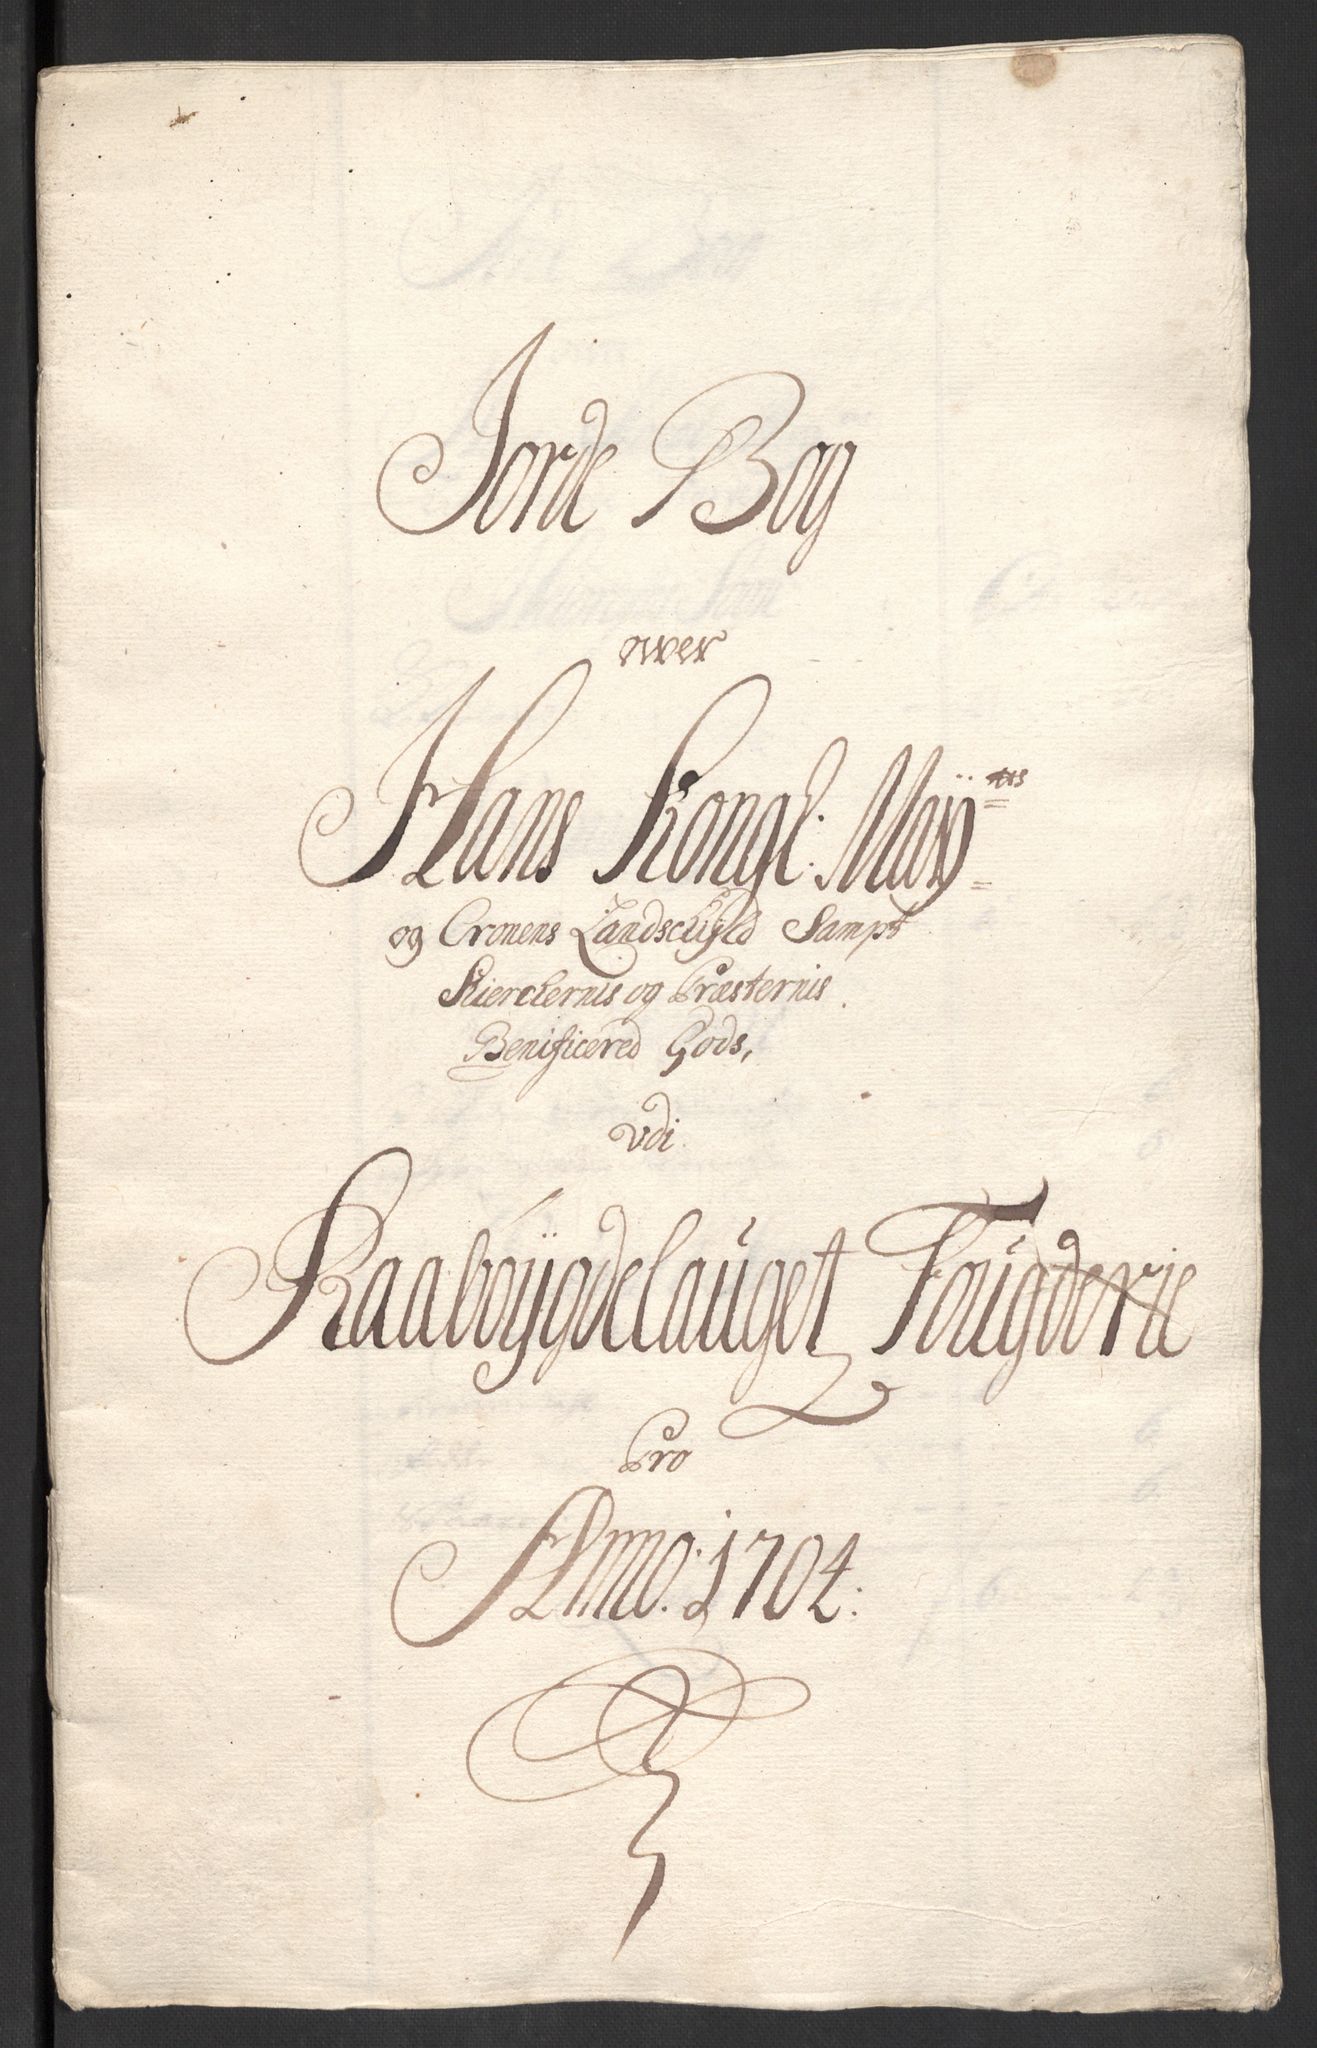 Jorde Bog
over
Hans Kongl: Maÿ:tts
og Cronens Landschÿld Sampt
Kierckernis og Præsternis
Benificered Gods,
vdi
Raaboÿgdelauget Fougderie
Pro
Anno: 1704: